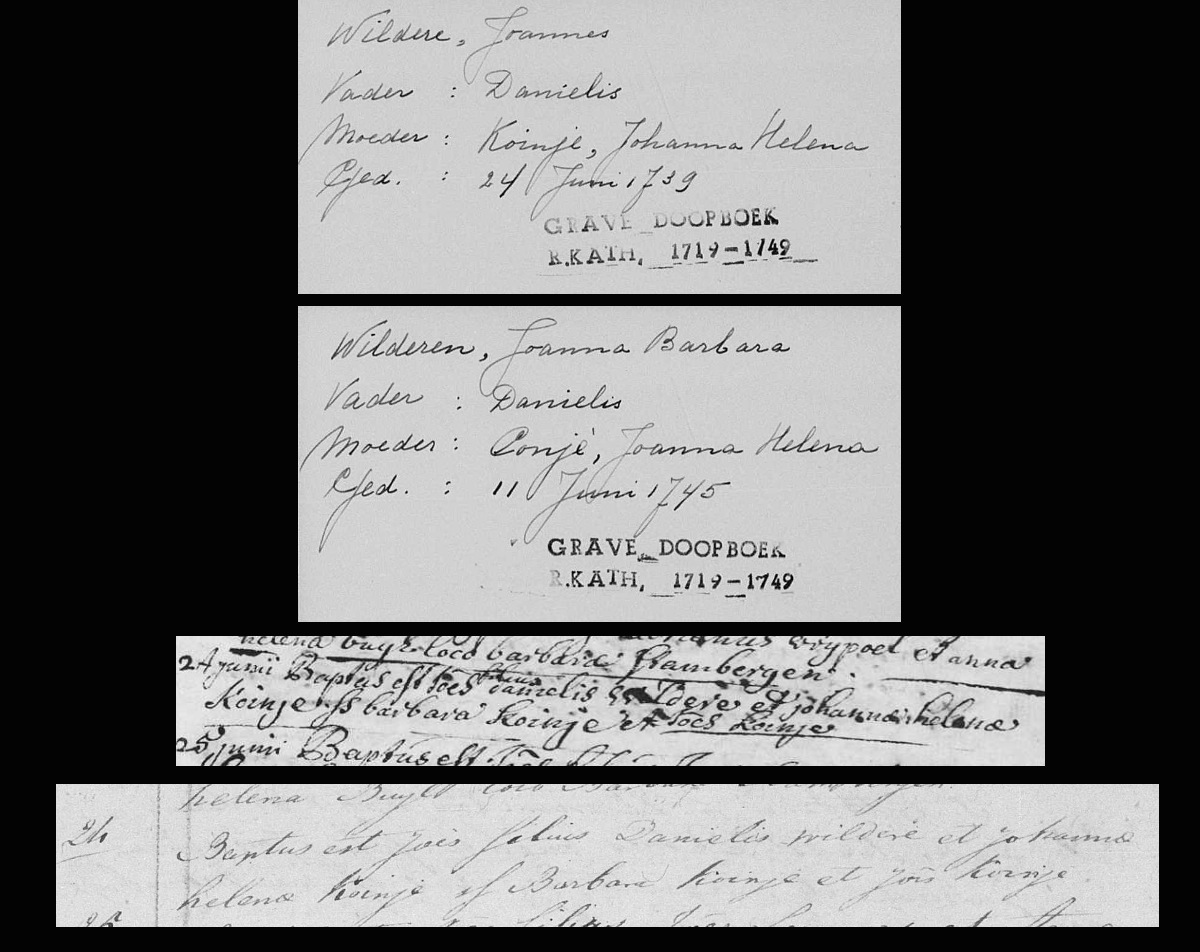 Wildere, Joannes
Vader : Danielis
Moeder : Koinje, Johanna Helena
Ged. : 24 Juni 1739
GRAVE DOOPBOEK
R.KATH. 1719-1749
Wilderen, Joanna Barbara
Vader : Danielis
Moeder : Conjè, Joanna Helena
Ged. : 11 Juni 1745
GRAVE DOOPBOEK
R.KATH. 1719-1749
helena loco barbara stambergen et anna
24 junii Baptus est Joês filius danielis et johannæ helenæ
Koinje ss barbara Koinje et Joês Koinje
25 junii Baptus est
helena loco
24 Baptus est Joês filius Danielis wildere et johannæ
helenæ Koinje ss Barbara Koinje et Joês Koinje
25 filius